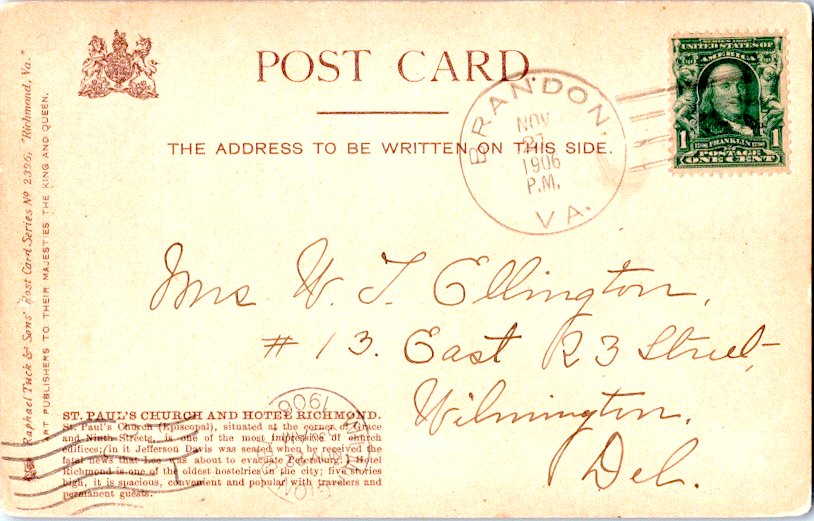 POST CARD
THE ADDRESS TO BE WRITTEN ON THIS SIDE.
BRANDON, VA.
NOV
27
1906
P.M.
SERIES 1902
UNITED STATES OF
AMERICA
1 1
FRANKLIN
POSTAGE
ONE CENT
Raphael Tuck & Sons' Post Card Series No 2396, "Richmond, Va."
ART PUBLISHERS TO THEIR MAJESTIES THE KING AND QUEEN.
Mrs W. T. Ellington,
# 13. East 23 Street
Wilmington,
Del.
ST. PAUL'S CHURCH AND HOTEL RICHMOND.
St. Paul's Church (Episcopal), situated at the corner of Grace
and Ninth Streets, is one of the most impressive of church
edifices; (in it Jefferson Davis was seated when he received the
fatal news that Lee was about to evacuate Petersburg.) Hotel
Richmond is one of the oldest hostelries in the city; five stories
high, it is spacious, convenient and popular with travelers and
permanent guests.
1906